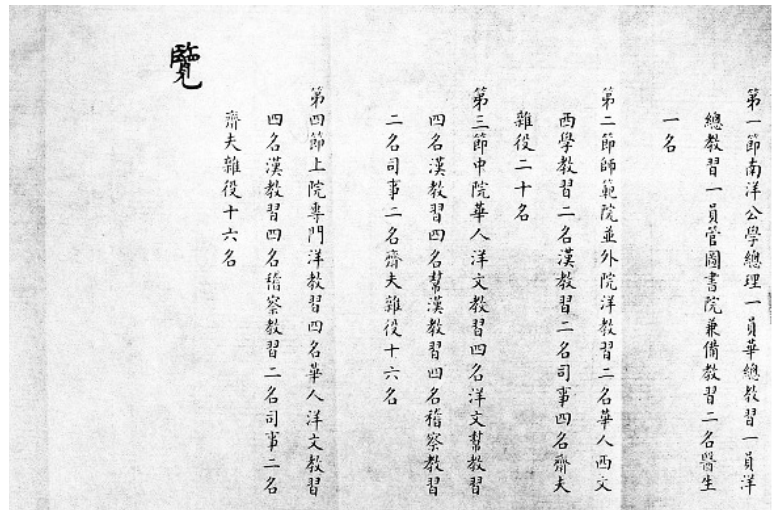 第一節南洋公學總理一員華總教習一員洋
總教習一員管圖書院兼備教習二名醫生
一名
第二節師範院並外院洋教習二名華人西文
西學教習二名漢教習二名司事四名齋夫
雜役二十名
第三節中院華人洋文教習四名洋文幫教習
四名漢教習四名幫漢教習四名稽察教習
二名司事二名齋夫雜役十六名
第四節上院專門洋教習四名華人洋文教習
四名漢教習四名稽察教習二名司事二名
齋夫雜役十六名
覽